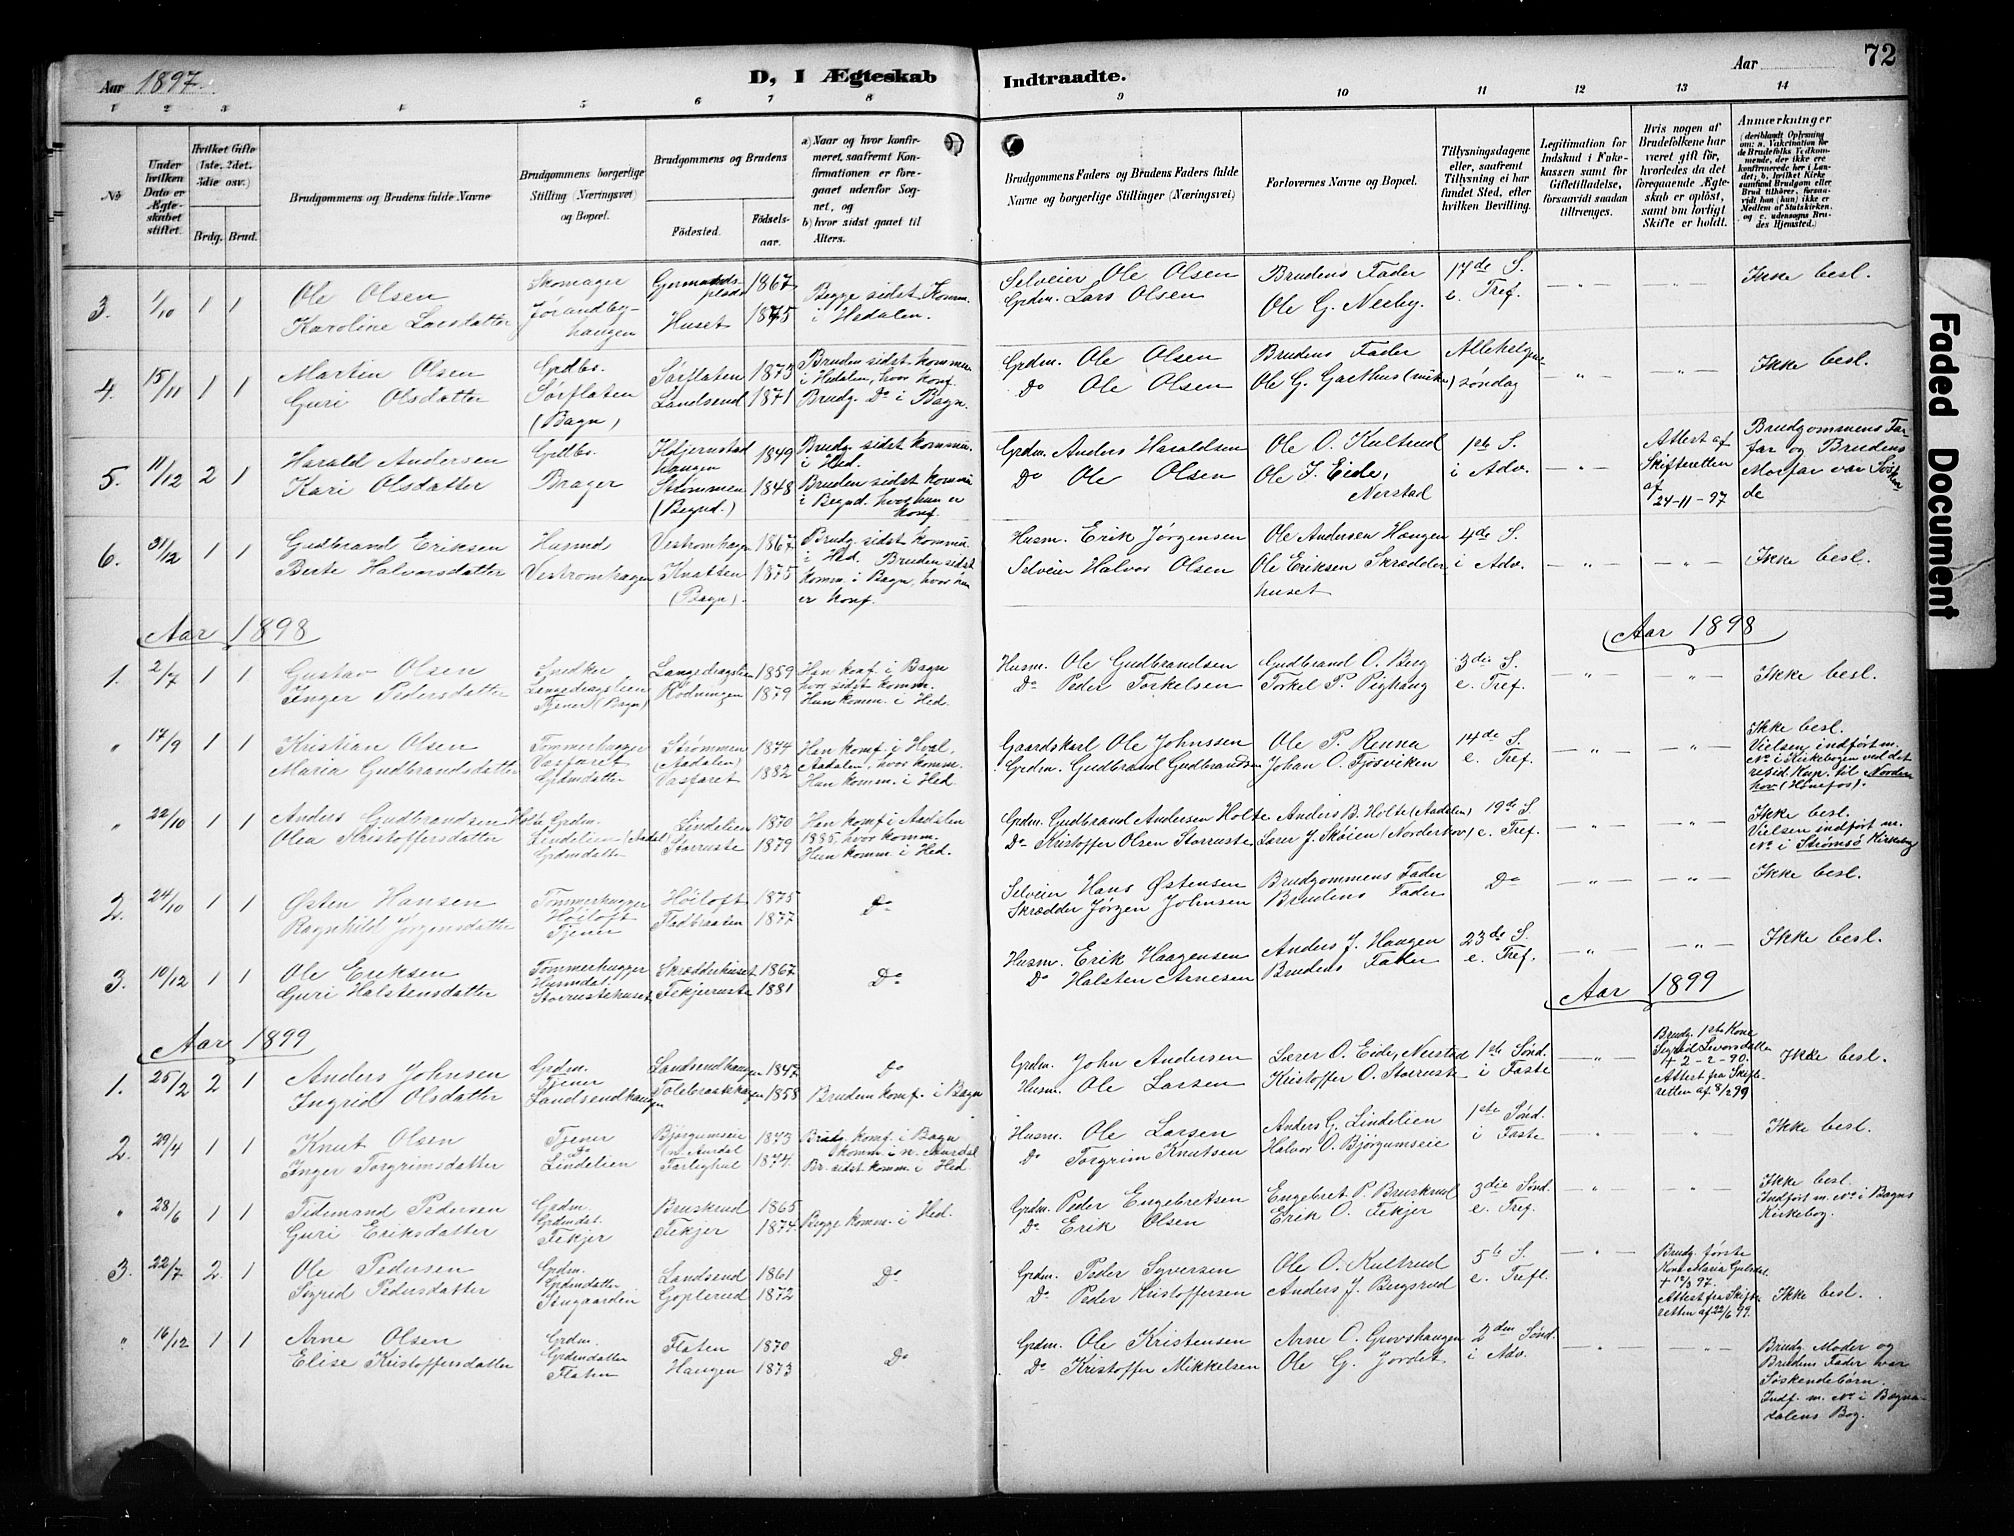 Aar 1897.
D, I Ægteskab
Indtraadte.
Aar
72
1 2 3 4 5 6 7 8 9 10 11 12 13 14
No
Under hvilken Dato er Ægteskabet stiftet.
Hvilket Gifte (1ste, 2det, 3die osv.)
Brdg. Brud.
Brudgommens og Brudens fulde Navne
Brudgommens borgerlige Stilling (Næringsvei) og Bopæl.
Brudgommens og Brudens
Fødested.
Fødselsaar.
a) Naar og hvor konfirmeret, saafremt Konfirmationen er foregaaet udenfor Sognet, og
b) hvor sidst gaaet til Alters.
Brudgommens Faders og Brudens Faders fulde Navne og borgerlige Stillinger (Næringsvei)
Forlovernes Navne og Bopæl.
Tillysningsdagene eller, saafremt Tillysning ei har fundet Sted, efter hvilken Bevilling.
Legitimation for Indskud i Enkekassen samt for Giftetilladelse, forsaavidt saadan tiltrænges.
Hvis nogen af Brudefolkene har været gift før, hvorledes da det foregaaende Ægteskab er opløst, samt om lovligt Skifte er holdt.
Anmærkninger
(deriblandt Oplysning om: a. Vakcination for de Brudefolks Vedkommende, der ikke ere konfirmerede her i Landet; b. hvilket Kirkesamfund Brudgom eller Brud tilhører, forsaavidt han (hun) ikke er Medlem af Statskirken, og c. udensogns Brudes Hjemsted.)
3. 1/10 1 1 Ole Olsen Skomager 1867 Begge sidst Komm. Selveier Ole Olsen Brudens Fader 17de S. Ikke besl.
Karoline Larsdatter Huset 1875 i Hedalen. Grdm. Lars Olsen Ole G. Neeby. e. Tref.
4. 15/11 1 1 Martin Olsen Grdbr. Sørflaten 1873 Bruden sidst komm. Grdm. Ole Olsen Brudens Fader Allehelgens
Guri Olsdatter Sørflaten Landsend 1871 i Hedalen, hvor konf. Do Ole Olsen Ole G. Garthus søndag -"- -"- Ikke besl.
(Bagn) Brudg. Do i Bagn.
5. 11/12 2 1 Harald Andersen Grdbr. 1849 Brudg. sidst kommu. Grdm. Anders Haraldsen Ole O. Kultrud 1ste S. Attest af Brudgommens Far-
Kari Olsdatter Brager Strømmen 1848 i Hed. Do Ole Olsen Ole I. Eide, i Adv. -"- Skifteretten far og Brudens
(Begnd.) Bruden sidst kommu. Nerstad af Morfar var Søsken-
i Begnd. hvor hun er konf. 24-11-97 de
6. 31/12 1 1 Gudbrand Eriksen Husmd Vestromhagen 1867 Brudg. sidst kommu. Husm. Erik Jørgensen Ole Andersen Haugen 4de S.
Berte Halvorsdatter Vestromhagen Knatten 1875 i Hed. Bruden sidst Selveier Halvor Olsen Ole Eriksen Skrædder- i Adv. -"- -"- Ikke besl.
(Bagn). komm. i Bagn, hvor hun huset
er konf.
Aar 1898 Aar 1898
1. 2/7 1 1 Gustav Olsen Snedker Langedragslien 1859 Han konf. i Bagn Husm. Ole Gudbrandsen Gudbrand O. Berg 3die S. -"- -"- Ikke besl.
Inger Pedersdatter Langedragslien Rodningen 1879 hvor sidst komm. Do Peder Torkelsen Torkel P. Pighaug e. Tref.
Tjener (Bagn) Hun komm. i Hed.
" 17/9 1 1 Kristian Olsen Tømmerhugger Strømmen 1874 Han konf. i Hval, Gaardskarl Ole Johnssen Ole P. Renna 14de S. -"- -"- Ikke besl.
Maria Gudbrandsdatter Vasfaret (Aadalen) Aadalen, hvor komm. Grdm. Gudbrand Gudbrandsen Johan O. Fjøsviken e. Tref. Vielsen indført m.
Grdmdatter Vasfaret 1882 Hun komm. i Hed. No i Kirkebogen ved det
resid. Kap. til Norderhov (Hønefos).
" 22/10 1 1 Anders Gudbrandsen Holte Grdm. Lindelien 1870 Han konf. i Aadalen Grdm. Gudbrand Andersen Holte Anders B. Holte (Aadalen) 19de S. -"- -"- Ikke besl.
Olea Kristoffersdatter Lindelien (Aadal) Storruste 1879 1885, hvor komm. Do Kristoffer Olsen Storruste Lærer J. Skøien (Norderhov) e. Tref. Vielsen indført m.
Grdmdatter Hun komm. i Hed. No i Strømsø Kirkebog
2. 24/10 1 1 Østen Hansen Tømmerhugger Høiloft 1875 Do Selveier Hans Østensen Brudgommens Fader Do -"- -"- Ikke besl.
Ragnhild Jørgensdatter Høiloft Fladbraaten 1877 Skrædder Jørgen Johnsen Brudens Fader
Tjener
3. 10/12 1 1 Ole Eriksen Tømmerhugger Skrædderhuset 1867 Do Husm. Erik Haagensen Anders J. Haugen 23de S. -"- -"- Ikke besl.
Guri Halstensdatter Husmdat. Tekjerruste 1881 Do Halsten Arnesen Brudens Fader e. Tref.
Storrustehuset
Aar 1899 Aar 1899
1. 25/2 2 1 Anders Johnsen Grdm. Landsendhaugen 1847 Do Grdm. John Andersen Lærer O. Eide, Nerstad 1ste Sønd. -"- Brudg. 1ste Kone Ikke besl.
Ingrid Olsdatter Tjener 1858 Bruden konf. i Bagn Husm. Ole Larsen Kristoffer O. Storruste i Faste Sigrid Iversdatter
Landsendhaugen + 2-2-90.
Attest fra Skifteretten af 8/2 99
2. 29/4 1 1 Knut Olsen Tjener Bjørgumseie 1873 Brudg. konf. i Bagn Husm. Ole Larsen Anders G. Lindelien 1ste Sønd. -"- -"- Ikke besl.
Inger Torgrimsdatter Do (n. Aurdal) komm. i n. Aurdal Do Torgrim Knutsen Halvor O. Bjørgumseie i Faste
Lindelien 1874. Br. sidst komm. i Hed.
" 28/6 1 1 Tidemand Pedersen Grdm. Bruskrud 1865 Begge komm. i Hed. Grdm. Peder Engebretsen Engebret P. Bruskrud 3die Sønd. -"- -"- Ikke besl.
Guri Eriksdatter Grdmdat. Tekjer 1874. Do Erik Olsen Erik O. Tekjer e. Tref. Indført m. No i Bagns
Tekjer Kirkebog.
3. 22/7 2 1 Ole Pedersen Grdm. Landsend 1861 Do Grdm. Peder Syversen Ole O. Kultrud 5te S. -"- Brudg. første
Sigrid Pedersdatter Grdmdatter Goplerud 1872 Do Peder Kristoffersen Anders J. Bergsrud e. Tref. Kone Maria
Stugaarden + 12/3 97.
Attest fra Skifteretten af 22/6 99. Ikke besl.
" 16/12 1 1 Arne Olsen Grdm. Flaten 1870 Do Grdm. Ole Kristensen Arne O. Grovshaugen 2den Sønd. -"- -"- Brudg. Moder og
Elise Kristoffersdatter Grdmdatter Haugen 1873 Do Kristoffer Mikkelsen Ole G. Jordet i Adv. Brudens Fader var
Flaten Søskendebørn.
Indf. m. No i Begnadalens Bog.
Faded Document